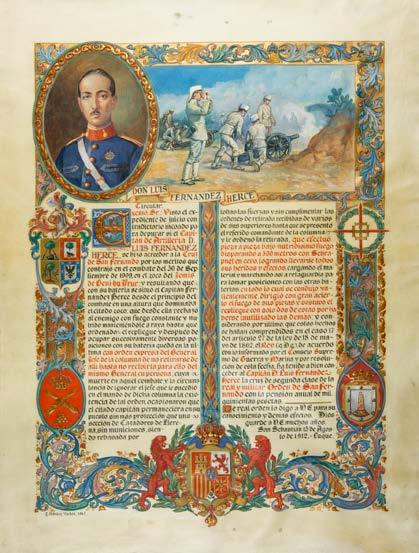 DON LUIS
FERNANDEZ HERCE
Circular:
Excmo. Sr: Visto el ex-
pediente de juicio con-
tradictorio incoado pa-
ra depurar si el Capi-
tán de Artilleria D.
LUIS FERNANDEZ
HERCE, se hizo acreedor a la Cruz
de San Fernando por los meritos que
contrajo en el combate del 30 de Sep-
tiembre de 1909, en el zoco del Jemis
de Beni-bu-Ifrur, y resultando que
con su batería se situó el Capitán Fer-
nandez Herce desde el principio del
combate en una altura que dominaba
el citado zoco que desde ella rechazó
al enemigo con fuego constante y nu-
trido manteniéndole a raya hasta que
ordenado el repliegue y después de
ocupar sucesivamente diversas po-
siciones con su batería quedó en la úl-
tima con orden expresa del General
Jefe de la columna de no retirarse de
allí hasta no recibirla para ello del
mismo General en persona, cuya
muerte en aquel combate y la circuns-
tancia de ignorar el jefe que le sucedió
en el mando de dicha columna la exis-
tencia de tal orden, ocasionaron que
el citado capitán permaneciera en su
puesto sin más protección que una
sección de Cazadores de Llere-
na, sin municiones, sien-
do rebasada por
todas las fuerzas y sin cumplimentar las
ordenes de retirada recibidas de varios
de sus superiores hasta que se presentó
el referido comandante de la columna
y le ordenó la retirada, que efectuó
pieza a pieza bajo nutridísimo fuego
disparando a 300 metros con Schrap-
nel en cero, logrando llevarse todos
sus heridos y efectos, cargando el ma-
terial y marchando así a retaguardia pa-
ra tomar posiciones con las otras ba-
terias, en todo lo cual se condujo va-
lientemente, dirigió con gran acier-
to el fuego de sus piezas y sostuvo el
repliegue con solo dos de estas por ha-
berse inutilizado las demás, y consi-
derando por último, que estos hechos
se hallan comprendidos en el caso 17
del artículo 27 de la Ley de 18 de ma-
yo de 1862, el Rey (q.D.g.) de acuerdo
con lo informado por el Consejo Supre-
mo de Guerra y Marina y por resolu-
ción de esta fecha, ha tenido a bien con-
ceder al Capitán D. Luis Fernandez
Herce la cruz de segunda clase de la
real y militar Orden de San Fer-
nando con la pensión anual de mil
quinientas pesetas
De real orden lo digo a V.E. para su
conocimiento y demás efectos. Dios
guarde a V.E. muchos años.
San Sebastián 13 de Agos-
to de 1912. - Luque.